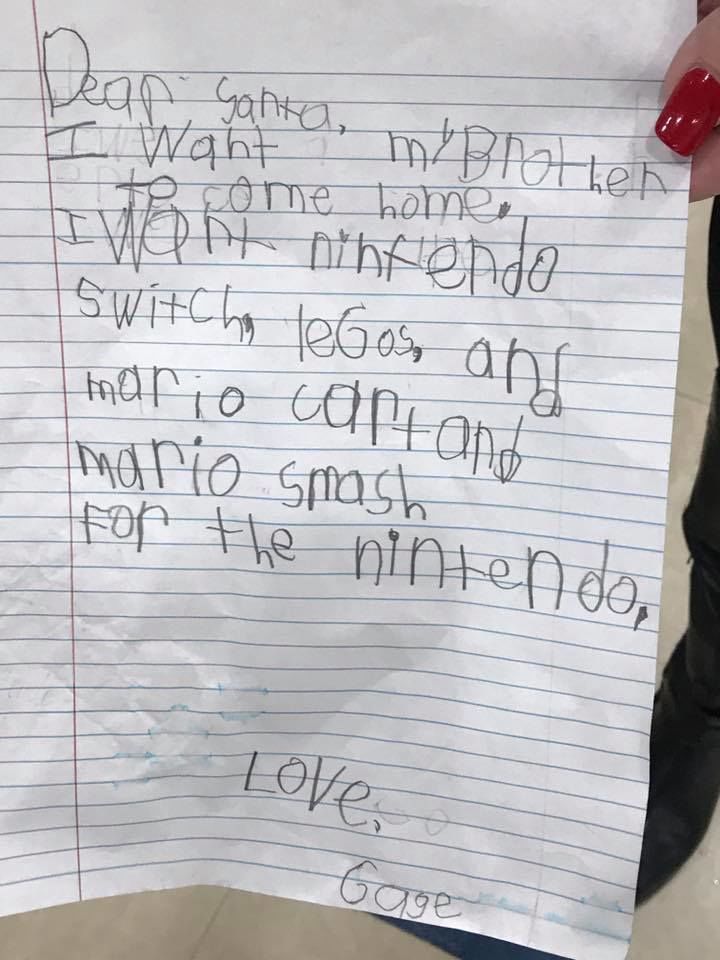 Dear Santa,
I Want my Brother
to come home.
I Want nintendo
Switch, leGos, and
mario cart and
mario smash
For the nintendo,
Love,
Gage